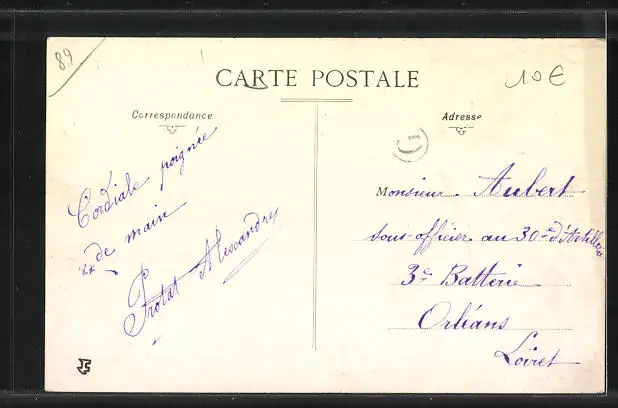 89
CARTE POSTALE
10€
Correspondance
Adresse
G
Cordiale poignée
de main
Protat Alexandre
Monsieur Aubert
sous-officier au 30e d'Artillerie
3e Batterie
Orléans
Loiret